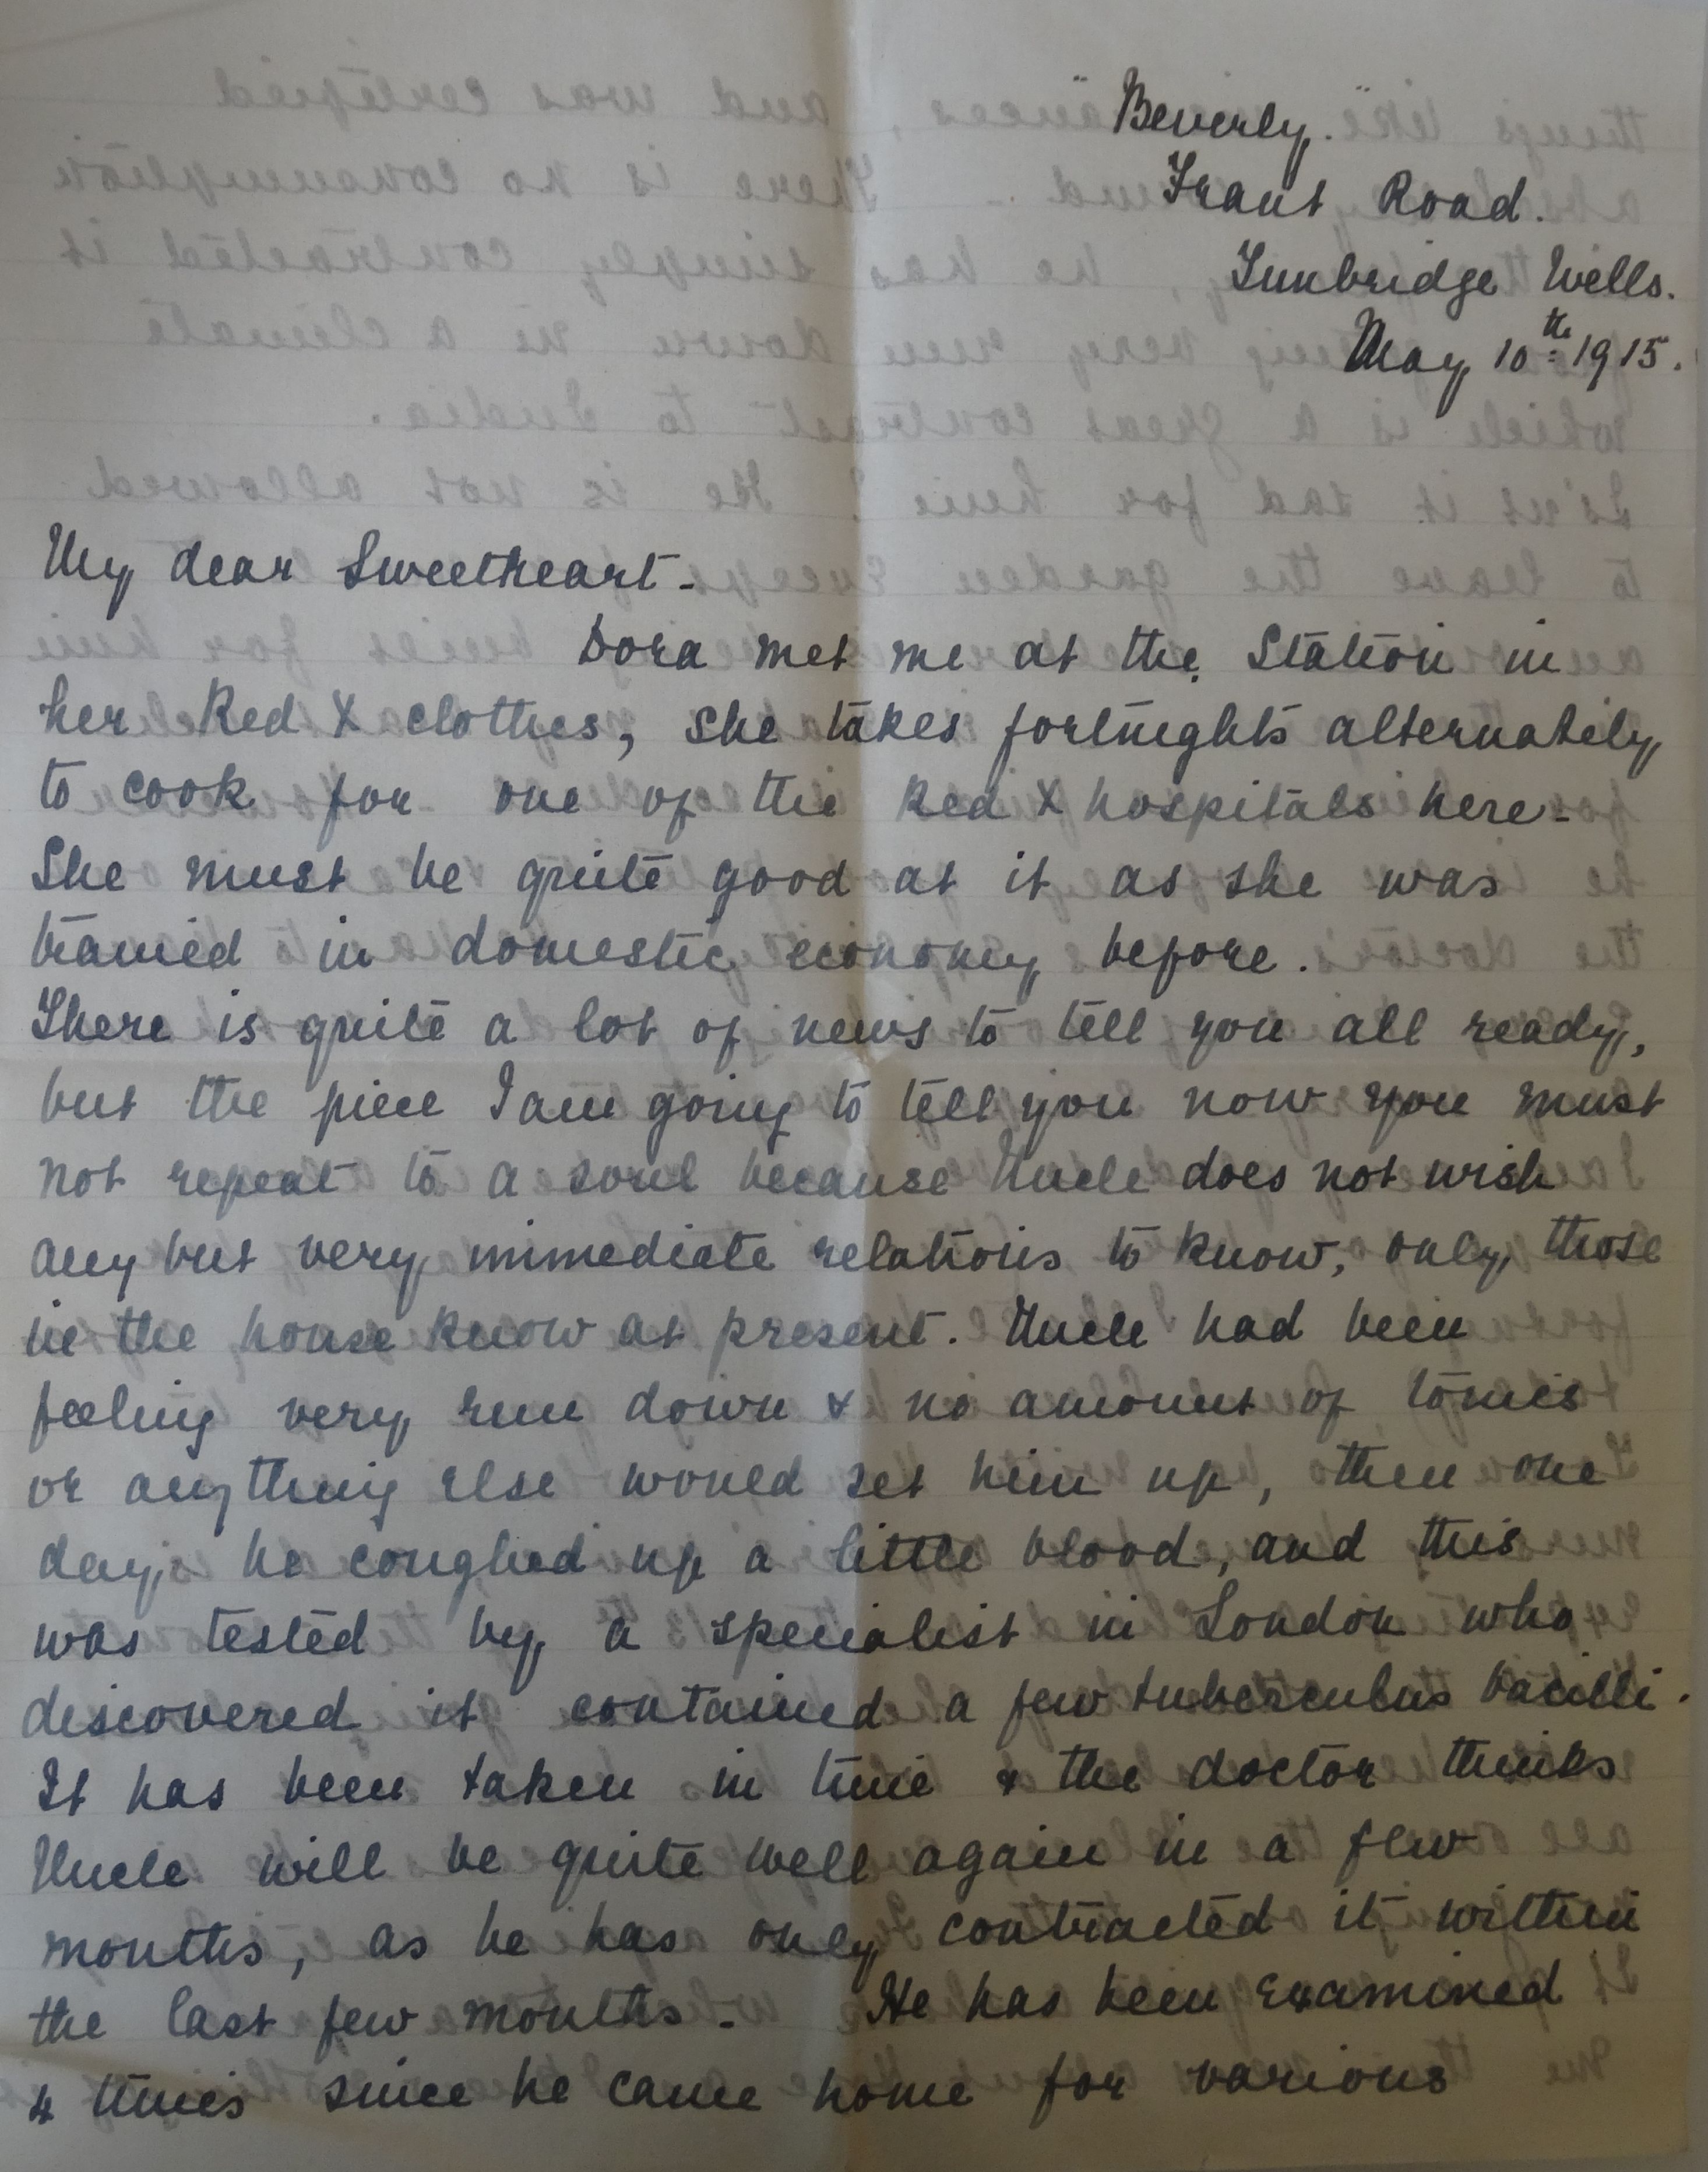 "Beverly."
Frant Road.
Tunbridge Wells.
May 10th 1915.
My dear Sweetheart -
Dora met me at the Station in
her Red X clothes, she takes fortnights alternately
to cook for one of the Red X hospitals here -
She must be quite good at it as she was
trained in domestic economy before.
There is quite a lot of news to tell you all ready,
but the piece I am going to tell you now you must
not repeat to a soul because Uncle does not wish
any but very immediate relations to know, only those
in the house know at present. Uncle had been
feeling very run down & no amount of tonics
or anything else would set him up, then one
day, he coughed up a little blood, and this
was tested by a specialist in London who
discovered it contained a few tuberculus bacilli.
It has been taken in time & the doctor thinks
Uncle will be quite well again in a few
months, as he has only contracted it within
the last few months - He has been examined
4 times since he came home for various